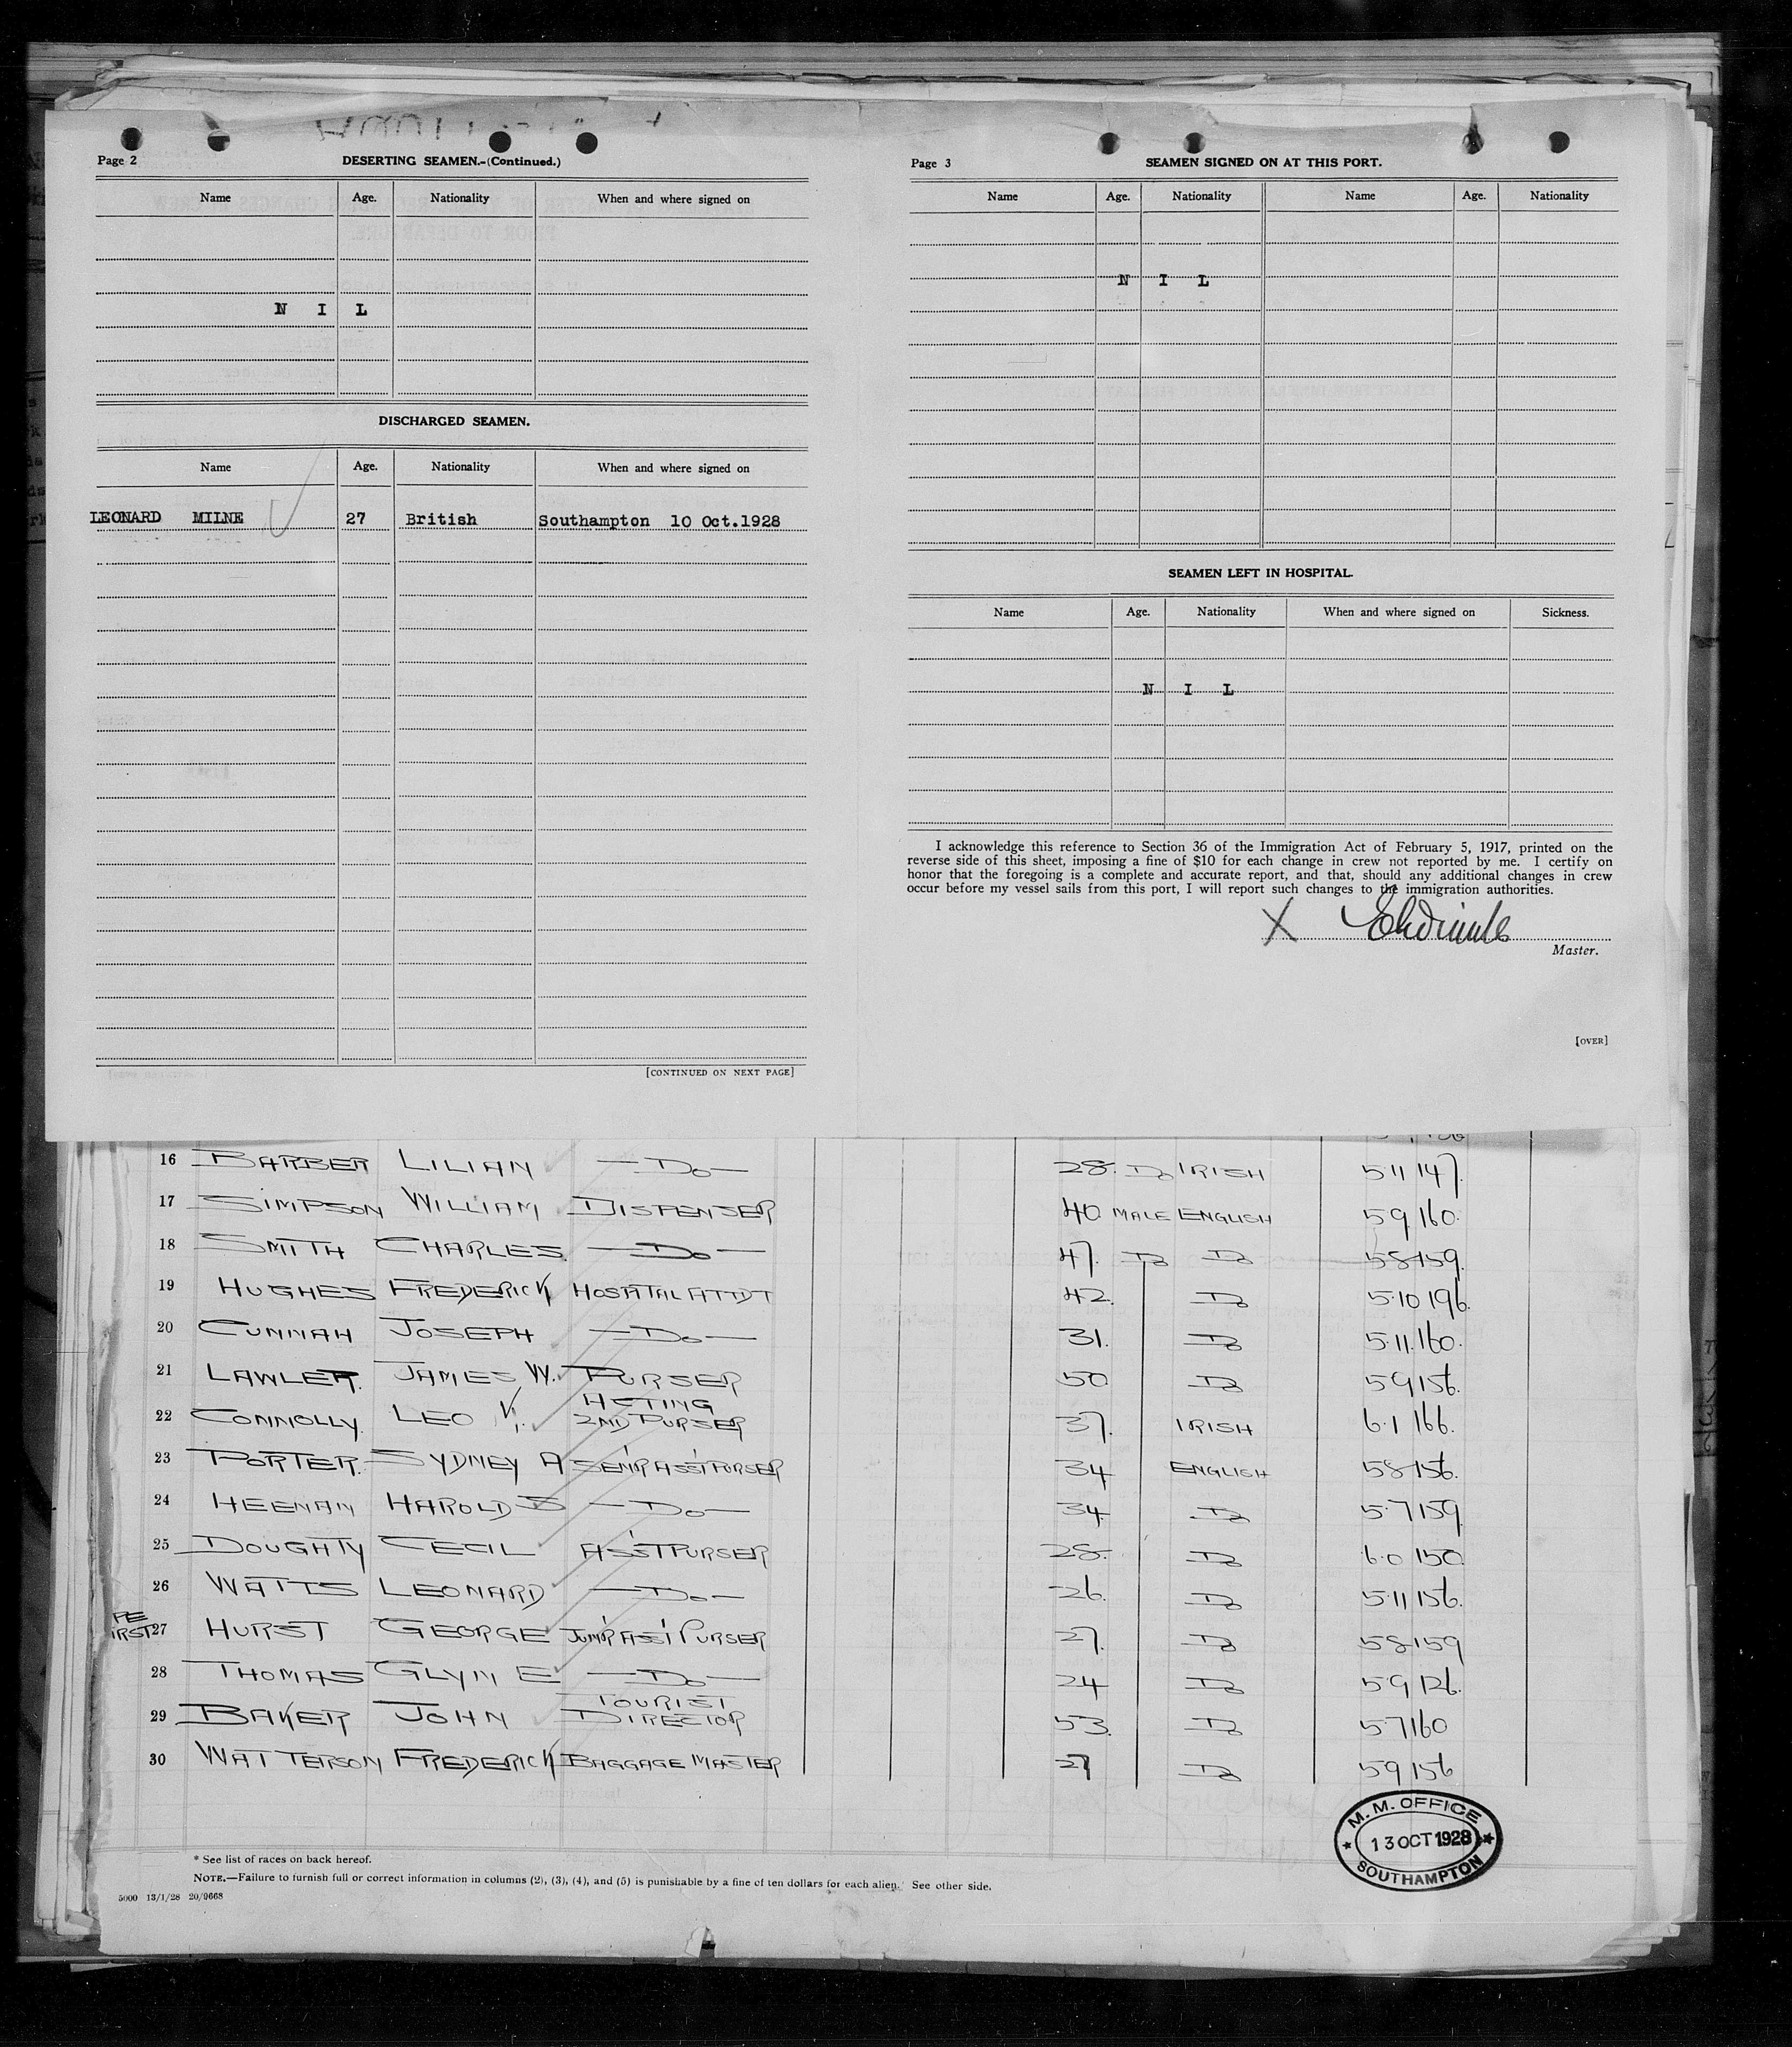 Page 2
DESERTING SEAMEN.-(Continued.)
Name Age. Nationality When and where signed on
N I L
DISCHARGED SEAMEN.
Name Age. Nationality When and where signed on
LEONARD MILNE 27 British Southampton 10 Oct.1928
[CONTINUED ON NEXT PAGE]
Page 3
SEAMEN SIGNED ON AT THIS PORT.
Name Age. Nationality Name Age. Nationality
N I L
SEAMEN LEFT IN HOSPITAL.
Name Age. Nationality When and where signed on Sickness.
N I L
I acknowledge this reference to Section 36 of the Immigration Act of February 5, 1917, printed on the
reverse side of this sheet, imposing a fine of $10 for each change in crew not reported by me. I certify on
honor that the foregoing is a complete and accurate report, and that, should any additional changes in crew
occur before my vessel sails from this port, I will report such changes to the immigration authorities.
X
Master.
[OVER]
16 BARBER LILIAN —Do— 28. Do IRISH 5.11 147.
17 SIMPSON WILLIAM DISPENSER 40 MALE ENGLISH 5.9 160.
18 SMITH CHARLES. —Do— 47. Do Do 5.8 159.
19 HUGHES FREDERICK HOSPITAL ATTDT 42. Do 5.10 196.
20 CUNNAH JOSEPH —Do— 31. Do 5.11. 160.
21 LAWLER. JAMES W. PURSER 50 Do 5.9 156.
22 CONNOLLY. LEO V. ACTING 2ND PURSER 37. IRISH 6.1 166.
23 PORTER. SYDNEY A SENR ASST PURSER 34 ENGLISH 5.8 156.
24 HEENAN HAROLD S —Do— 34. Do 5.7 159
25 DOUGHTY CECIL ASST PURSER 28. Do 6.0 150.
26 WATTS LEONARD —Do— 26. Do 5.11 156.
27 HURST GEORGE JUNR ASST PURSER 27. Do 5.8 159
28 THOMAS GLYN E —Do— 24 Do 5.9 126.
29 BAKER JOHN TOURIST DIRECTOR 53. Do 5.7 160
30 WATTERSON FREDERICK BAGGAGE MASTER 27 Do 5.9 156
M. M. OFFICE
13 OCT 1928
SOUTHAMPTON
* See list of races on back hereof.
NOTE.—Failure to furnish full or correct information in columns (2), (3), (4), and (5) is punishable by a fine of ten dollars for each alien. See other side.
5000 13/1/28 20/9668